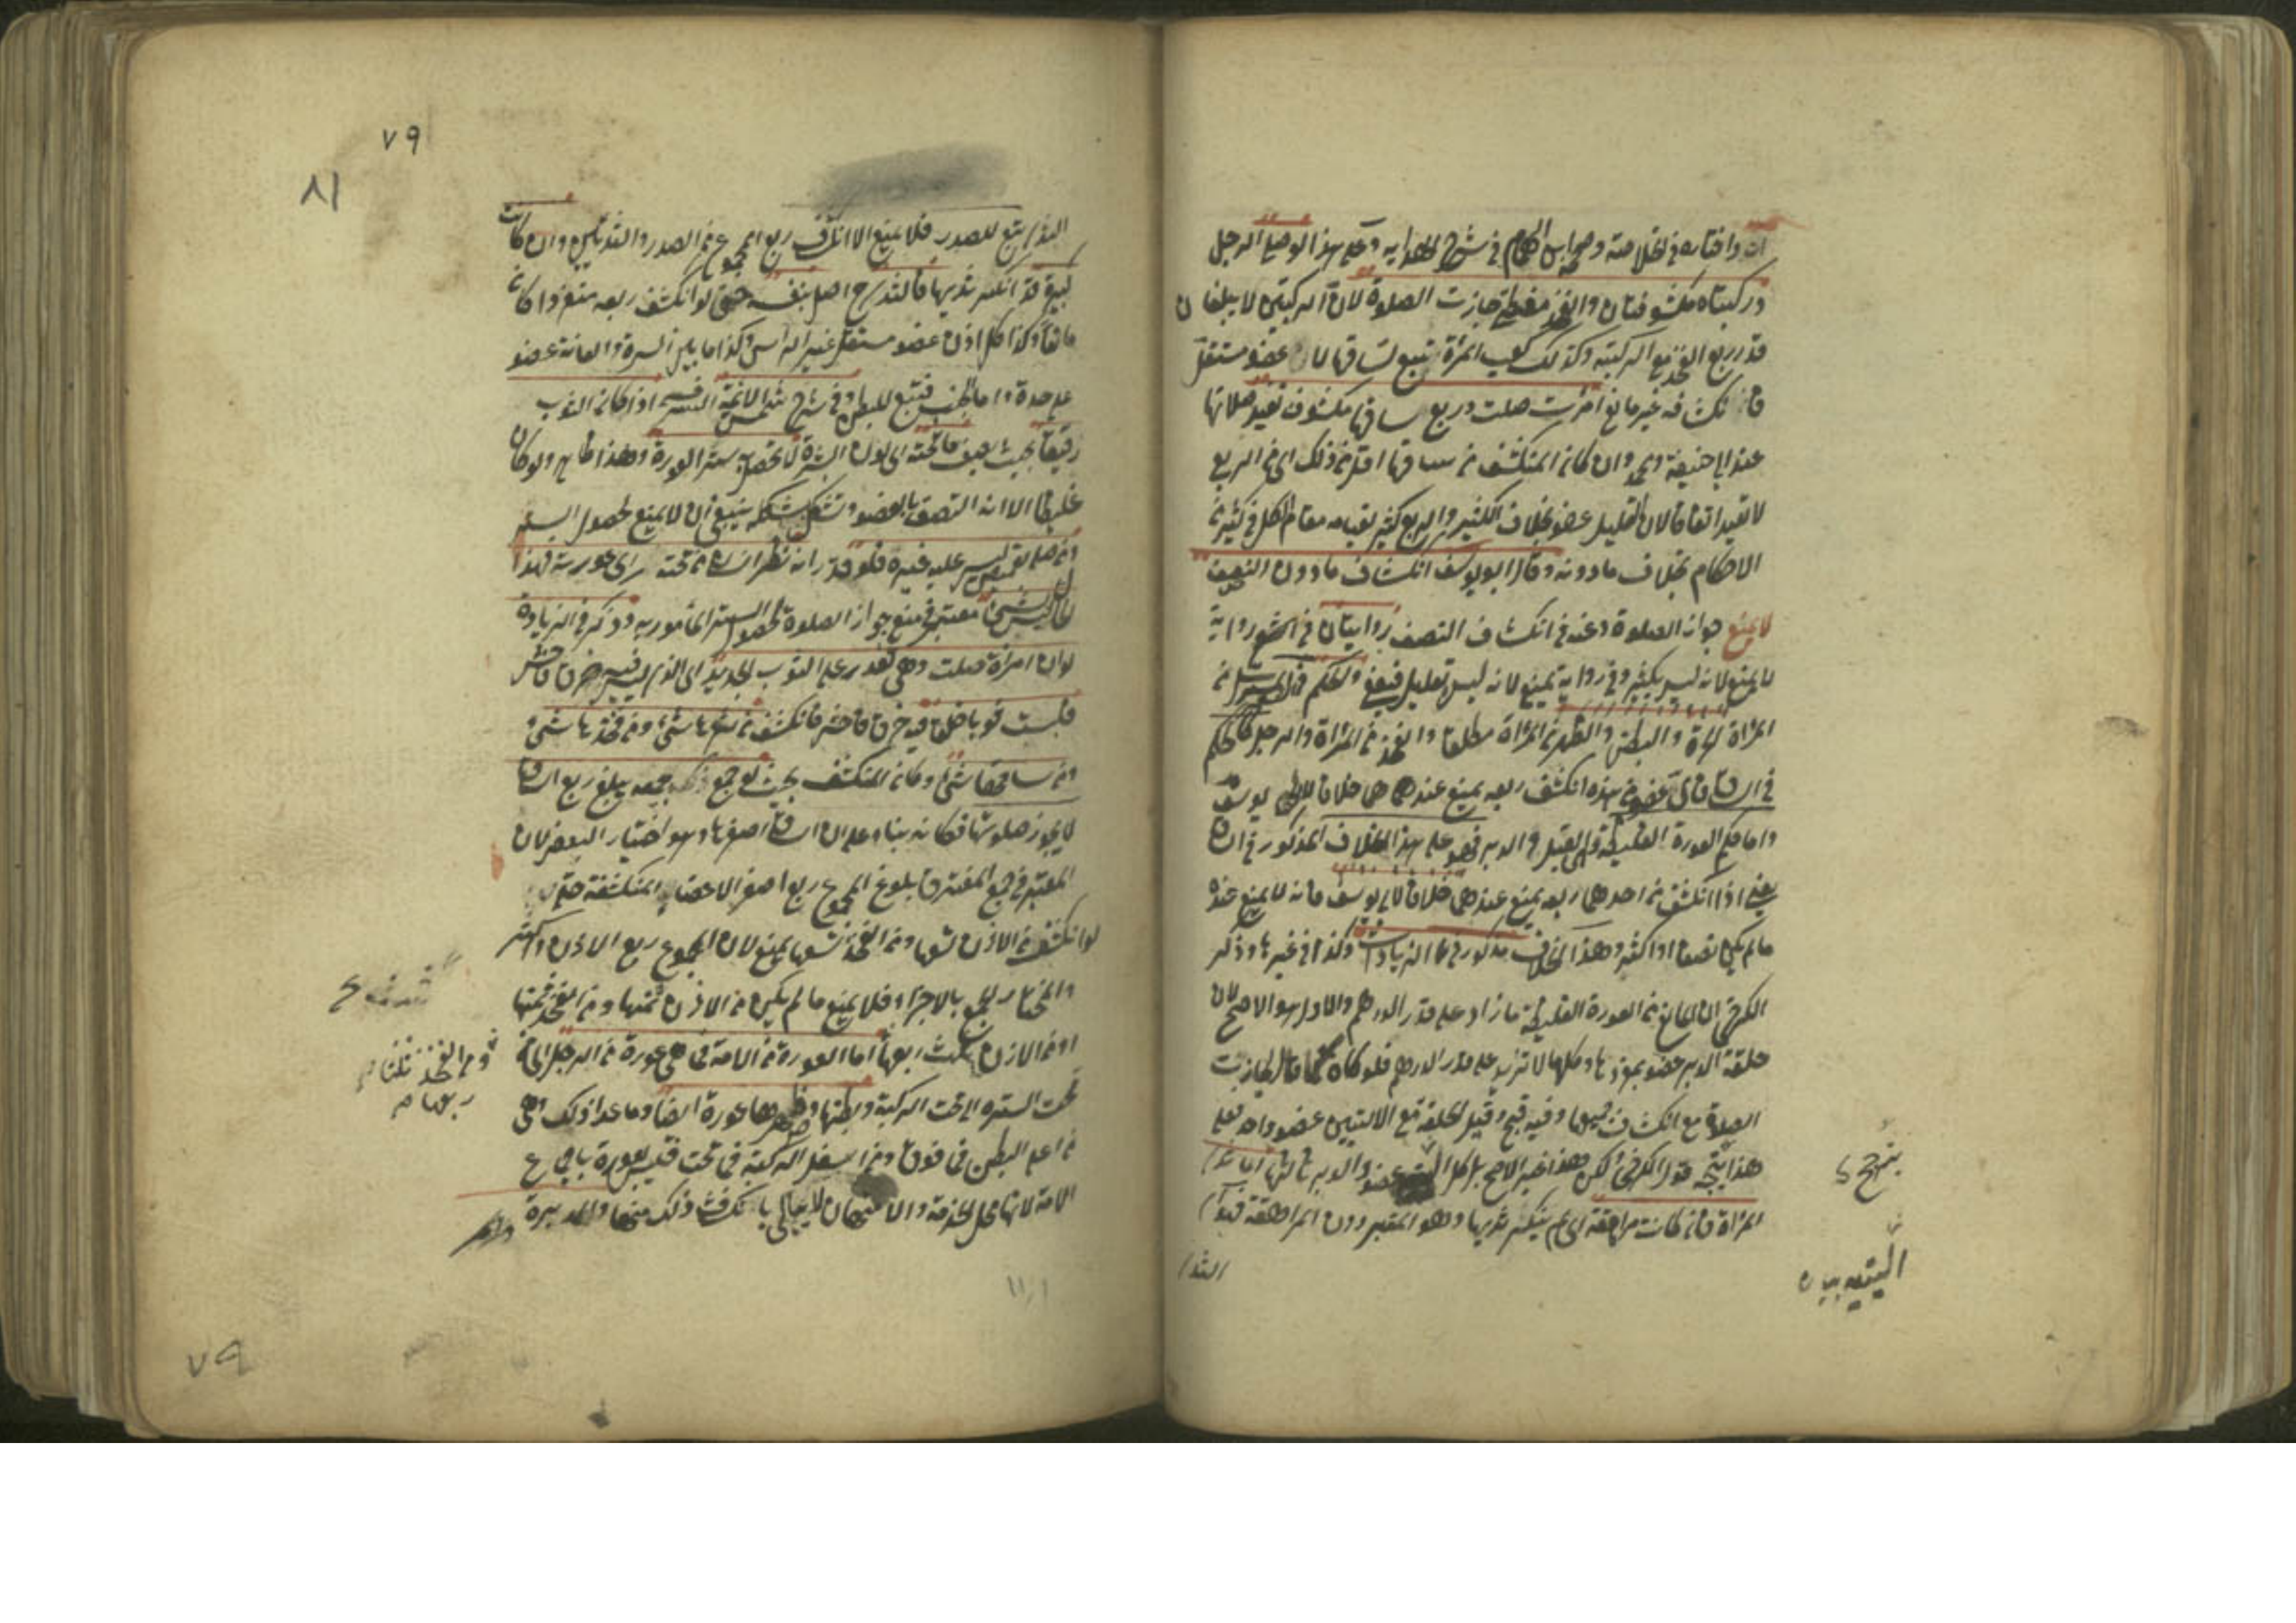 واختاره في الخلاصة وصححه ابن الهمام في شرح الهداية وعلى هذا لو صلى الرجل
وركبتاه مكشوفتان والفخذ مغطى جازت الصلوة لان الركبتين لا يبلغان
قدر ربع الفخذ مع الركبة وكذلك كعب المرأة تبع لساقها لا عضو مستقل
فانكشافه غير مانع امرأت صلت وربع ساقها مكشوف تعيد صلاتها
عند ابي حنيفة ومحمد وان كان المنكشف من ساقها اقل من ذلك اي من الربع
لا تعيد اتفاقا لان القليل عفو بخلاف الكثير والربع كثير لقيامه مقام الكل في كثير من
الاحكام بخلاف ما دونه وقال ابو يوسف انكشاف ما دون النصف
لا يمنع جواز الصلوة وعنه في انكشاف النصف روايتان في رواية
لا يمنع لانه ليس بكثير وفي رواية يمنع لانه ليس بقليل والحكم في الشعر المسترسل من
المرأة الحرة والبطن والظهر من المرأة مطلقا والفخذ من المرأة والرجل كالحكم
في الساق فاي عضو من هذه انكشف ربعه يمنع عندهما خلافا لابي يوسف
واما حكم العورة الغليظة وهي القبل والدبر فهو على هذا الخلاف المذكور في الساق
يعني اذا انكشف من احدهما ربعه يمنع عندهما خلافا لابي يوسف فانه لا يمنع عنده
ما لم يكن نصفا او اكثر وهذا الخلاف مذكور في الزيادات وكذا في غيرها وذكر
الكرخي ان المانع من العورة الغليظة ما زاد على قدر الدرهم والاول هو الاصح لان
حلقة الدبر عضو بمفردها وكلها لا تزيد على قدر الدرهم فلو كان كما قال لجازت
الصلوة مع انكشاف جميعها وفيه قبح وقيل الحلقة مع الاليتين عضو واحد فعلى
هذا يتجه قول الكرخي لكن هذا غير الاصح بل كل الية عضو والدبر ثالثهما اما ثدي
المرأة فان كانت مراهقة اي لم ينكسر ثديها وهو المعتبر دون المراهقة فهو
الثدي
يتجه
الية
٧٩
٨١
الثدي تبع للصدر فلا يمنع الا انكشاف ربع المجموع من الصدر والثديين وان كانت
كبيرة قد انكسر ثديها فالثدي ح اصل بنفسه حتى لو انكشف ربعه منع واكان
مانعا وكذا كل اذن عضو مستقل غير الرأس وكذا ما بين السرة والعانة عضو
على حدة واما الجنب فتبع للبطن وفي شرح شمس الائمة السرخسي اذا كان الثوب
رقيقا بحيث يصف ما تحته اي لون البشرة لا يحصل به ستر العورة وهذا ظاهر ولو كان
غليظا الا انه التصق بالعضو وتشكل بشكله ينبغي ان لا يمنع لحصول الستر
ومن صلى بقميص ليس عليه غيره فلو قدر انه نظر انسان من تحته رأى عورته فهذا
ليس بشيء معتبر في منع جواز الصلوة لحصول الستر المأمور به وذكر في الزيادات
لو ان امرأة صلت وهي تقدر على الثوب الجديد اي الذي ليس فيه خرق فاحش
فلبست ثوبا خلقا فيه خرق فاحش فانكشف من شعرها شيء ومن فخذها شيء
ومن ساقها شيء وكان المنكشف بحيث لو جمع جميعه يبلغ ربع الساق
لا يجوز صلوتها فكانه بناء على ان الساق اصغرها وهو اختيار البعض لان
المعتبر في جمع المفترق بلوغ المجموع ربع اصغر الاعضاء المنكشفة حتى
لو انكشف من الاذن تسعها ومن الفخذ تسعها يمنع لان المجموع ربع الاذن واكثر
والمختار الجمع بالاجزاء فلا يمنع ما لم يكن من الاذن ثمنها ومن الفخذ ثمنها
او من الاذن ثلث ربعها اما العورة من الامة فما هي عورة من الرجل اي ما
تحت السرة الى تحت الركبة وبطنها وظهرها عورة ايضا وما عدا ذلك اي
من اعلى البطن فما فوق ومن اسفل الركبة فما تحت فليس بعورة باجماع
الامة لانها محل الخدمة والامتهان لا يبالى بانكشاف ذلك منها والمدبرة وام
ومن الفخذ ثلثا
ربعها م
٧٩